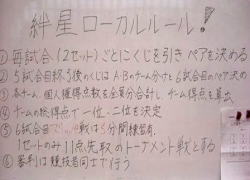 絆星ローカルルール!
① 毎試合(2セット)ごとにくじを引きペアを決める
② 5試合目終了後のくじはA・Bのチーム分けと6試合目のペア決め
③ 各チーム、個人獲得点数を全員分合計し、チーム得点を算出
④ チームの総得点で一位、二位を決定
⑤ 6試合目 戦は5分間練習有、
1セットのみ11点先取のトーナメント戦とする
⑥ 審判は競技者同士で行う